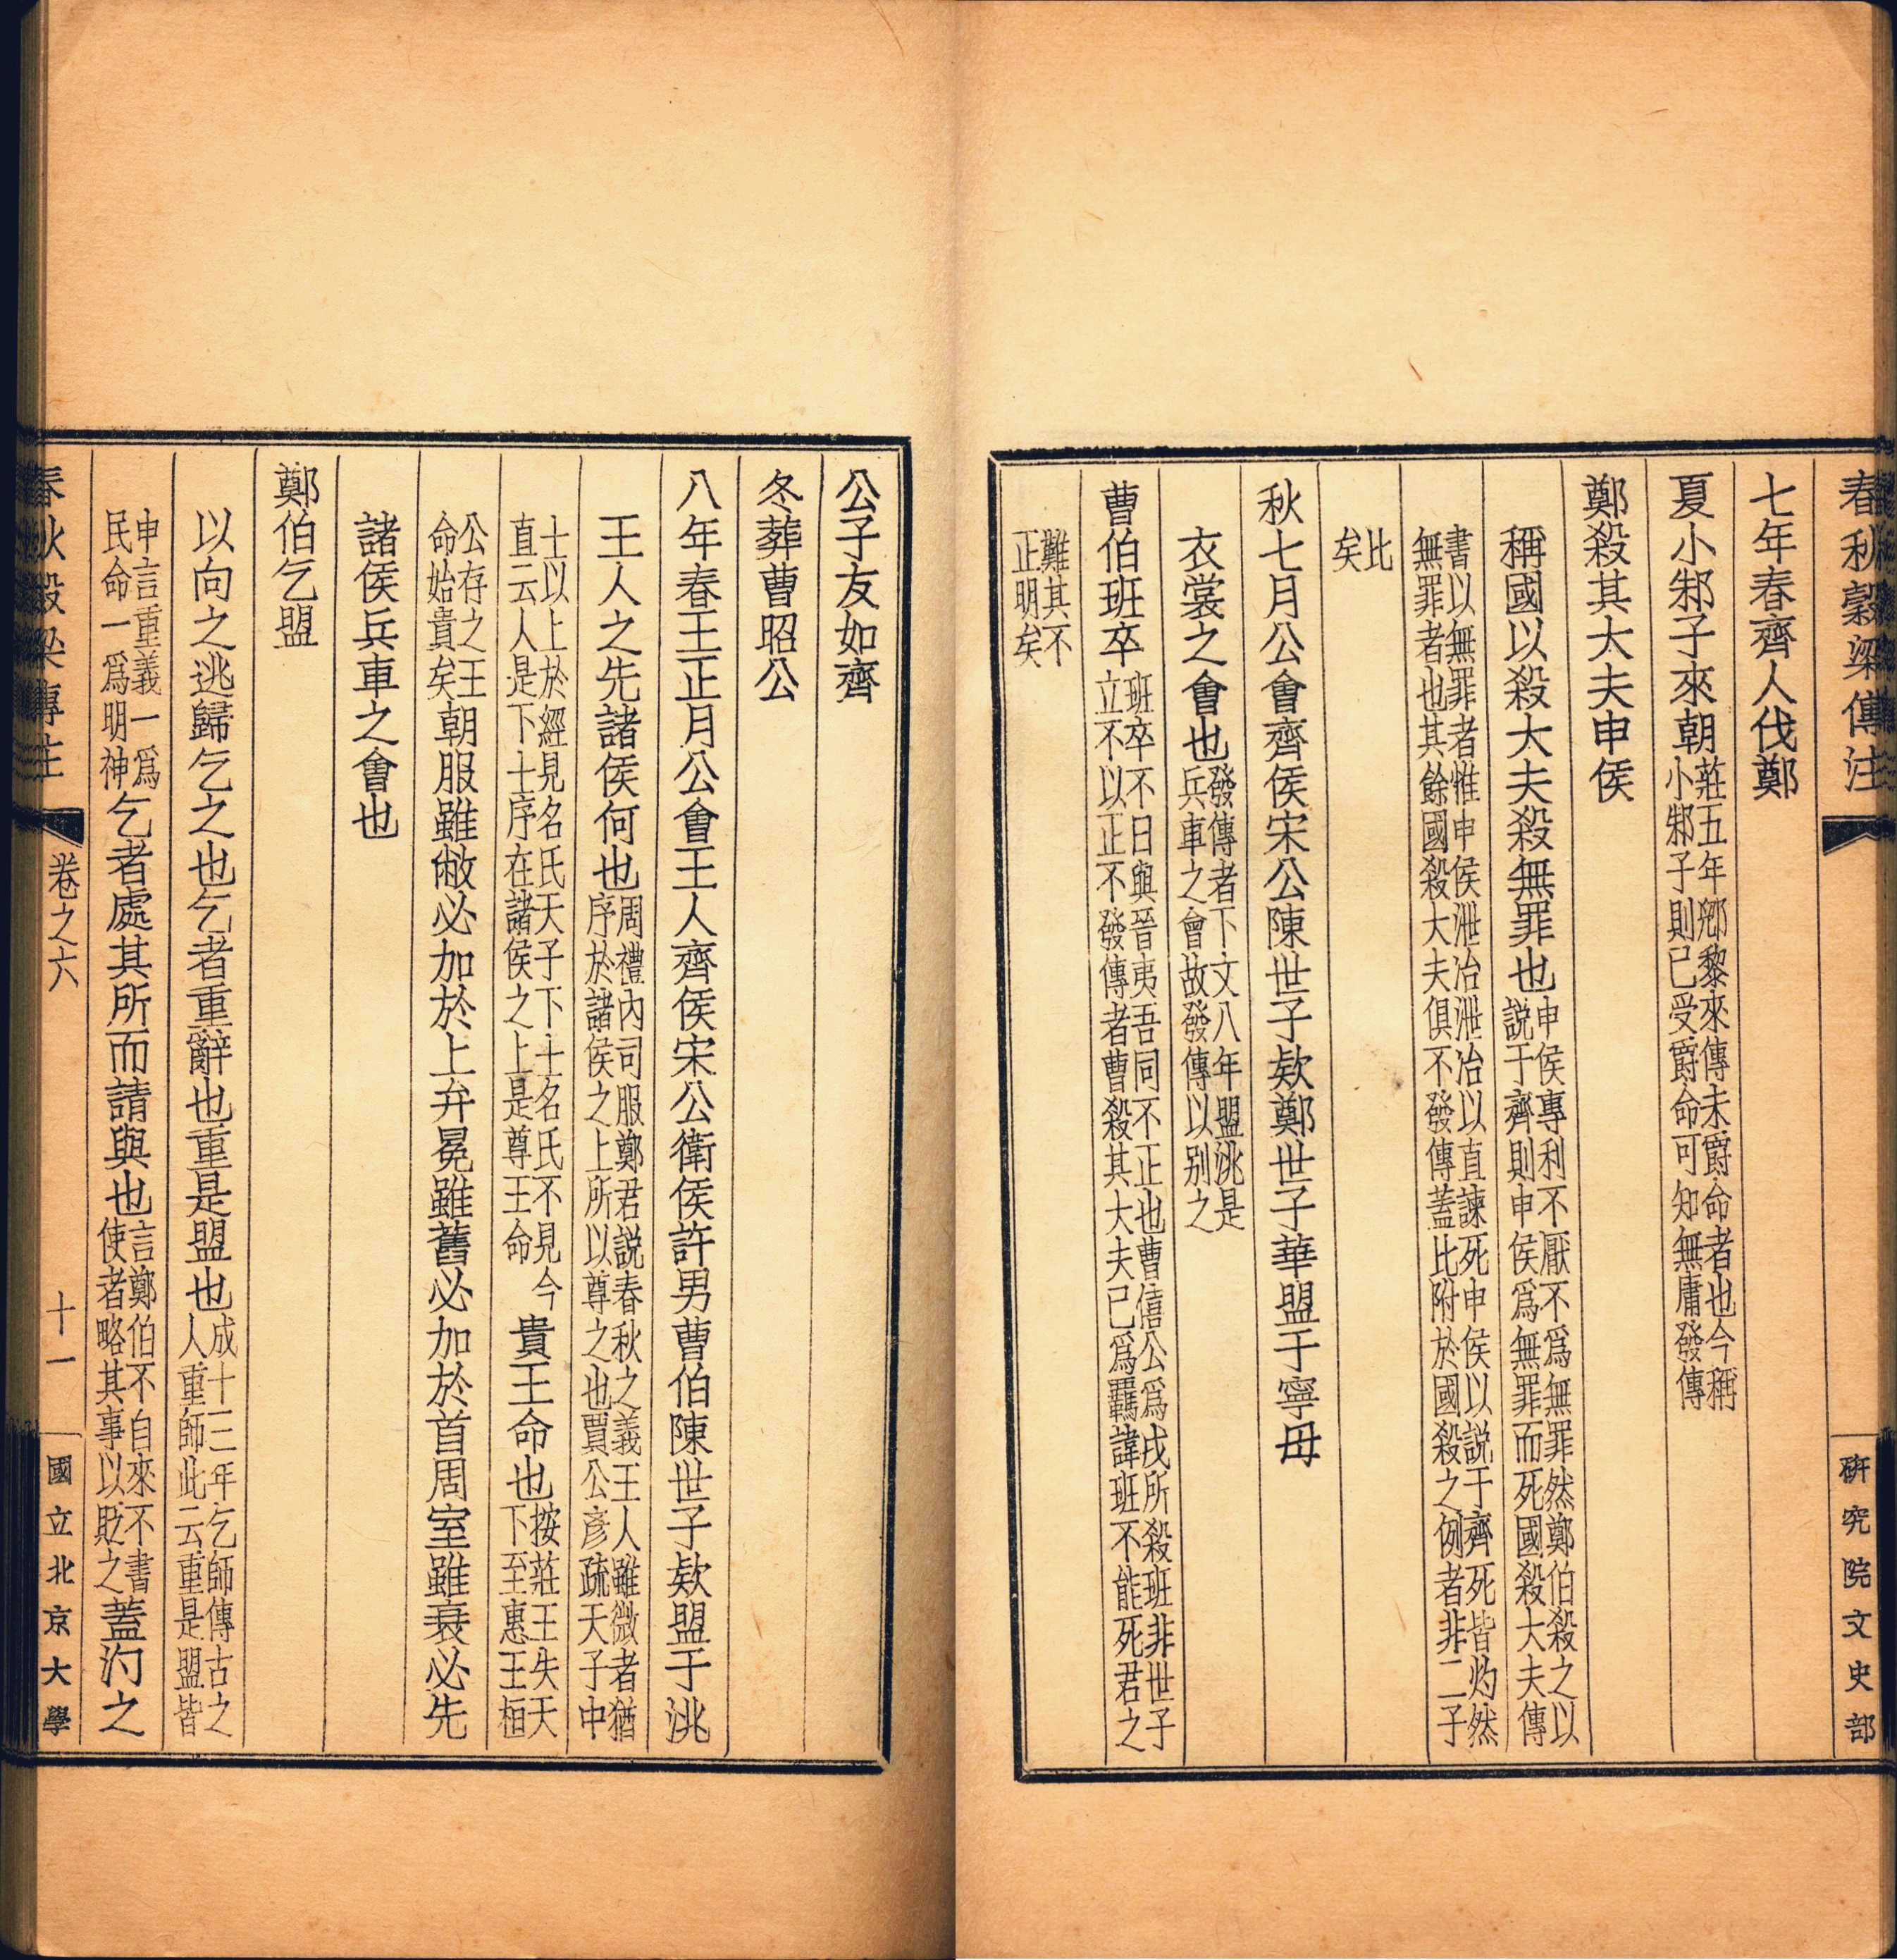 春秋穀梁傳注　研究院文史部
七年春齊人伐鄭
夏小邾子來朝莊五年郳黎來傳未爵命者也今稱小邾子則已受爵命可知無庸發傳
鄭殺其大夫申侯
稱國以殺大夫殺無罪也申侯專利不厭不爲無罪然鄭伯殺之以説于齊則申侯爲無罪而死國殺大夫傳
書以無罪者惟申侯泄冶泄冶以直諫死申侯以説于齊死皆灼然無罪者也其餘國殺大夫俱不發傳蓋比附於國殺之例者非二子
比矣
秋七月公會齊侯宋公陳世子欵鄭世子華盟于寧毋
衣裳之會也發傳者下文八年盟洮是兵車之會故發傳以别之
曹伯班卒班卒不日與晉夷吾同不正也曹僖公爲戎所殺班非世子立不以正不發傳者曹殺其大夫已爲羈諱班不能死君之
難其不正明矣
公子友如齊
冬葬曹昭公
八年春王正月公會王人齊侯宋公衛侯許男曹伯陳世子欵盟于洮
王人之先諸侯何也周禮內司服鄭君説春秋之義王人雖微者猶序於諸侯之上所以尊之也賈公彥疏天子中
士以上於經見名氏天子下士名氏不見今直云人是下士序在諸侯之上是尊王命貴王命也按莊王失天下至惠王桓
公存之王命始貴矣朝服雖敝必加於上弁冕雖舊必加於首周室雖衰必先
諸侯兵車之會也
鄭伯乞盟
以向之逃歸乞之也乞者重辭也重是盟也成十三年乞師傳古之人重師此云重是盟皆
申言重義一爲民命一爲明神乞者處其所而請與也言鄭伯不自來不書使者略其事以貶之蓋汋之
春秋穀梁傳注　卷之六　十一　國立北京大學